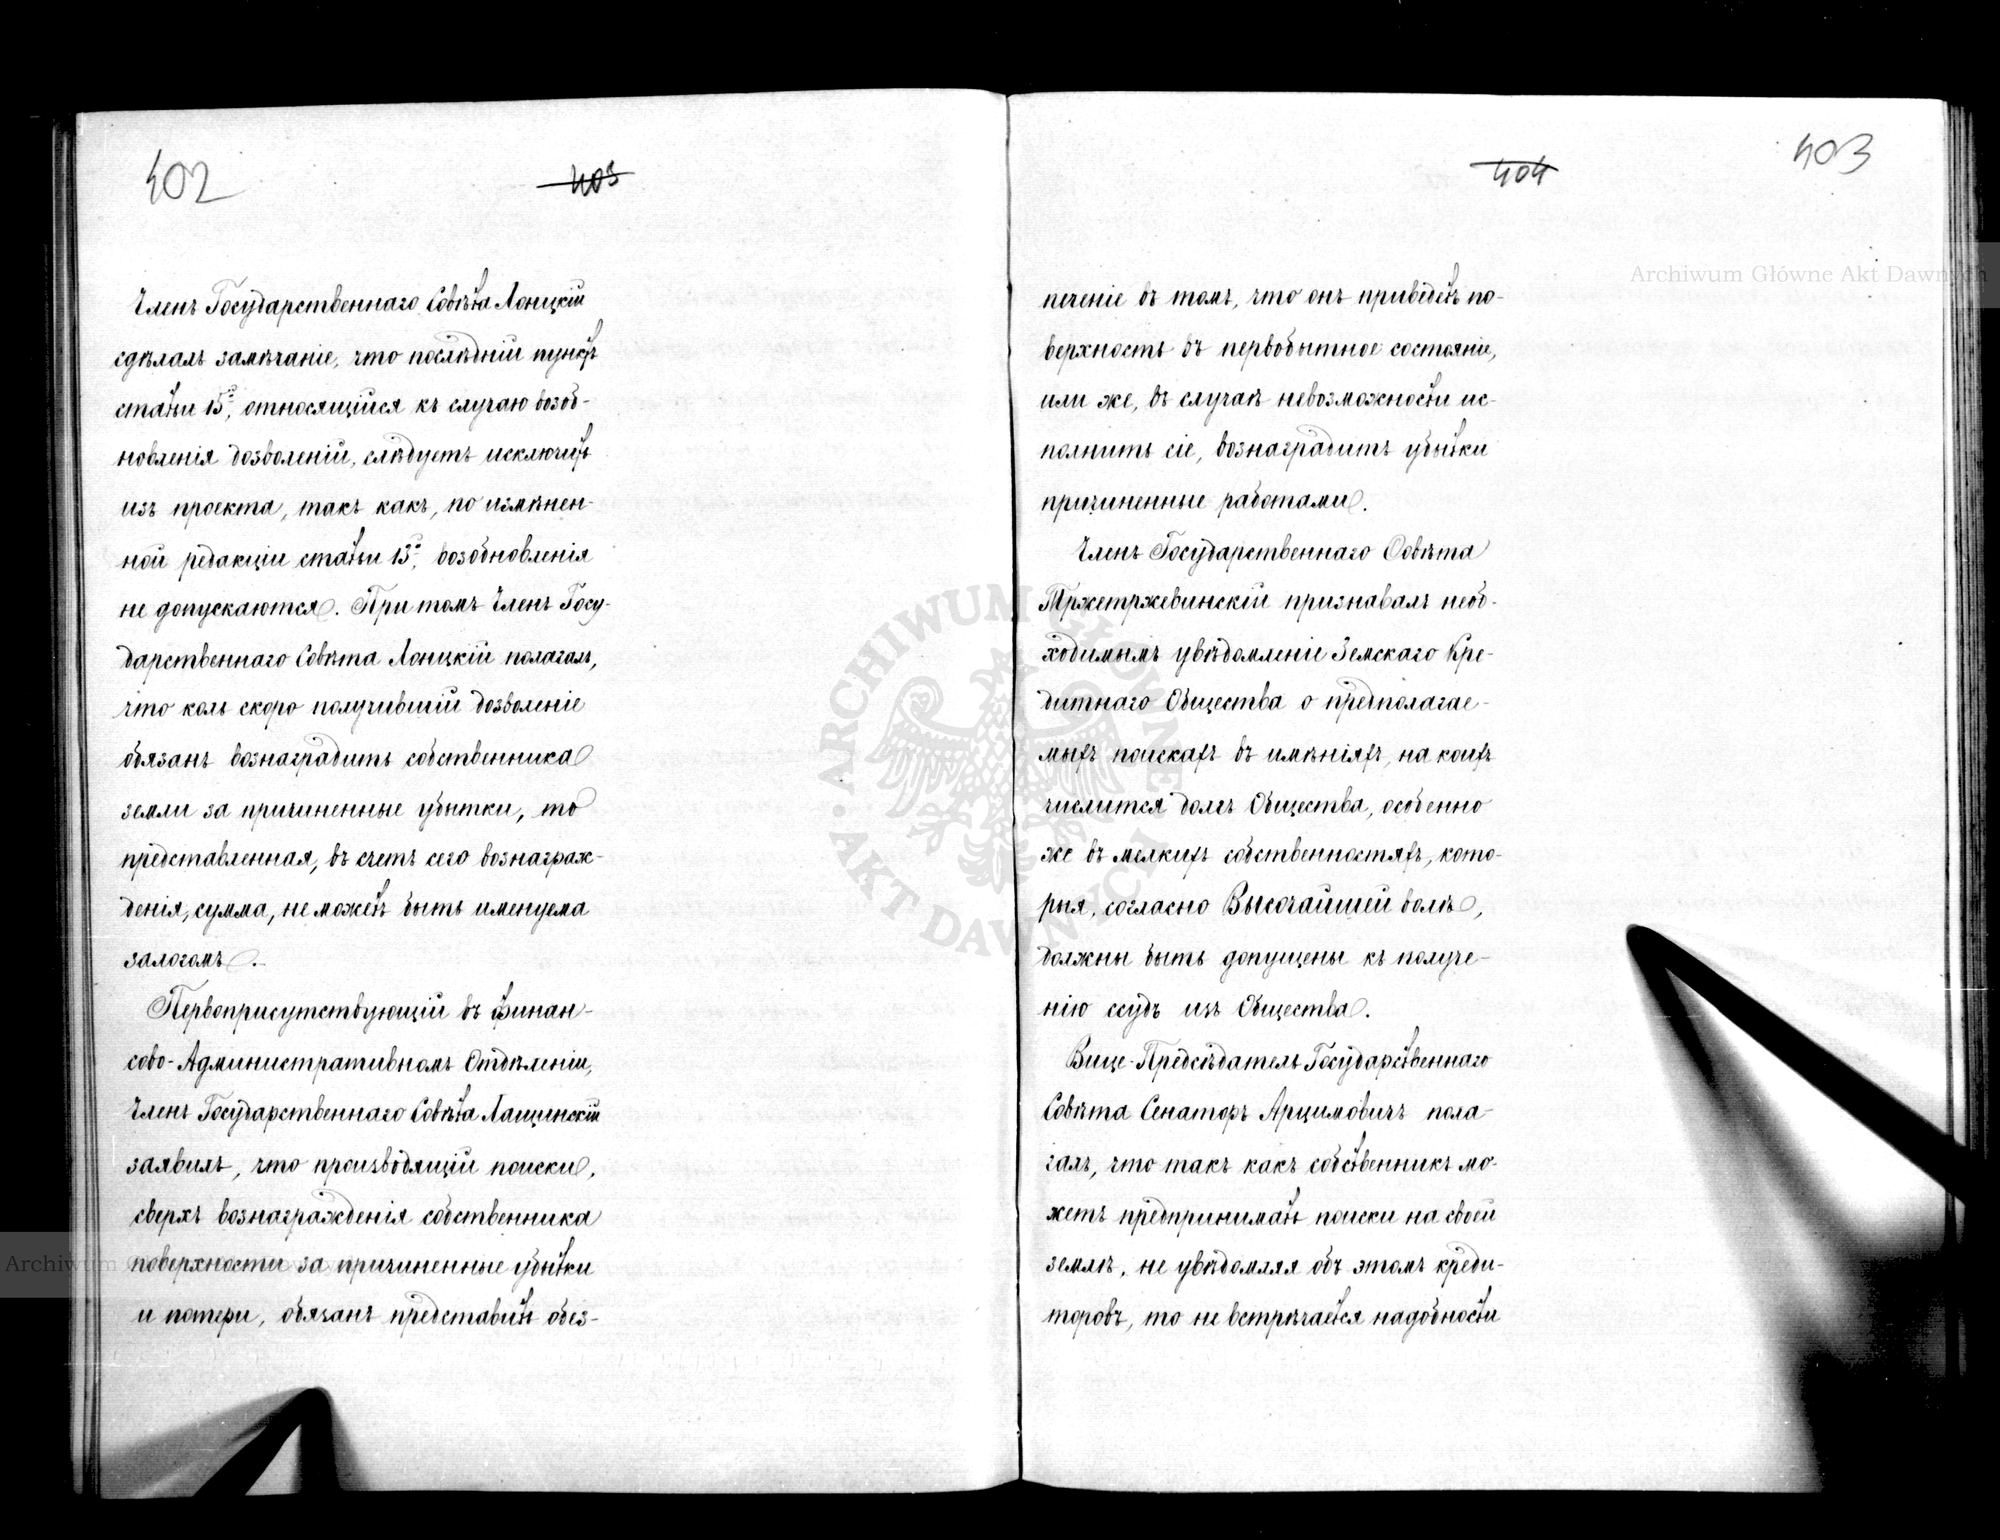 402
403
Членъ Государственнаго Совѣта Лонцкій
сдѣлалъ замѣчаніе, что послѣдній пунктъ
статьи 15й, относящійся къ случаю возоб-
новленія дозволеній, слѣдуетъ исключить
изъ проекта, такъ какъ, по измѣнен-
ной редакціи статьи 13й, возобновленія
не допускаются. При томъ Членъ Госу-
дарственнаго Совѣта Лонцкій полагалъ,
что коль скоро получившій дозволеніе
обязанъ вознаградить собственника
земли за причиненные убытки, то
представленная, въ счетъ сего вознаграж-
денія, сумма, не можетъ быть именуема
залогомъ.
Первоприсутствующій въ Финан-
сово-Административномъ Отдѣленіи,
Членъ Государственнаго Совѣта Лащинскій
заявилъ, что производящій поиски,
сверхъ вознагражденія собственника
поверхности за причиненные убытки
и потери, обязанъ представить обез-
404
403
печеніе въ томъ, что онъ приведетъ по-
верхность въ первобытное состояніе,
или же, въ случаѣ невозможности ис-
полнить сіе, вознаградитъ убытки
причиненные работами.
Членъ Государственнаго Совѣта
Тржетржевинскій признавалъ необ-
ходимымъ увѣдомленіе Земскаго Кре-
дитнаго Общества о предполагае-
мыхъ поискахъ въ имѣніяхъ, на коихъ
числится долгъ Общества, особенно
же въ мелкихъ собственностяхъ, кото-
рыя, согласно Высочайшей волѣ,
должны быть допущены къ получе-
нію ссудъ изъ Общества.
Вице-Предсѣдатель Государственнаго
Совѣта Сенаторъ Арцимовичъ пола-
галъ, что такъ какъ собственникъ мо-
жетъ предпринимать поиски на своей
землѣ, не увѣдомляя объ этомъ креди-
торовъ, то не встрѣчается надобности
Archiwum Główne Akt Dawnych
ARCHIWUM GŁÓWNE AKT DAWNYCH